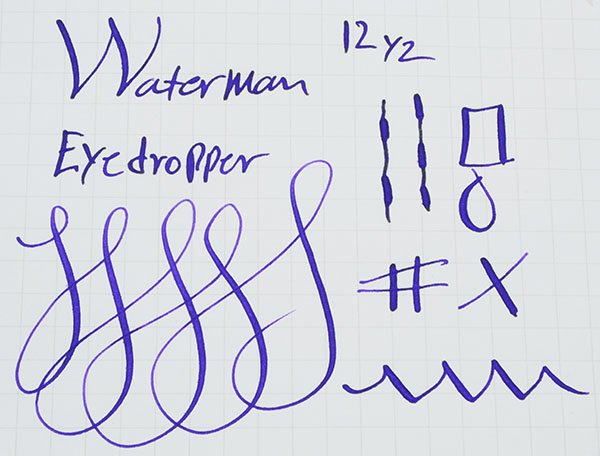 Waterman
12 1/2
Eyedropper